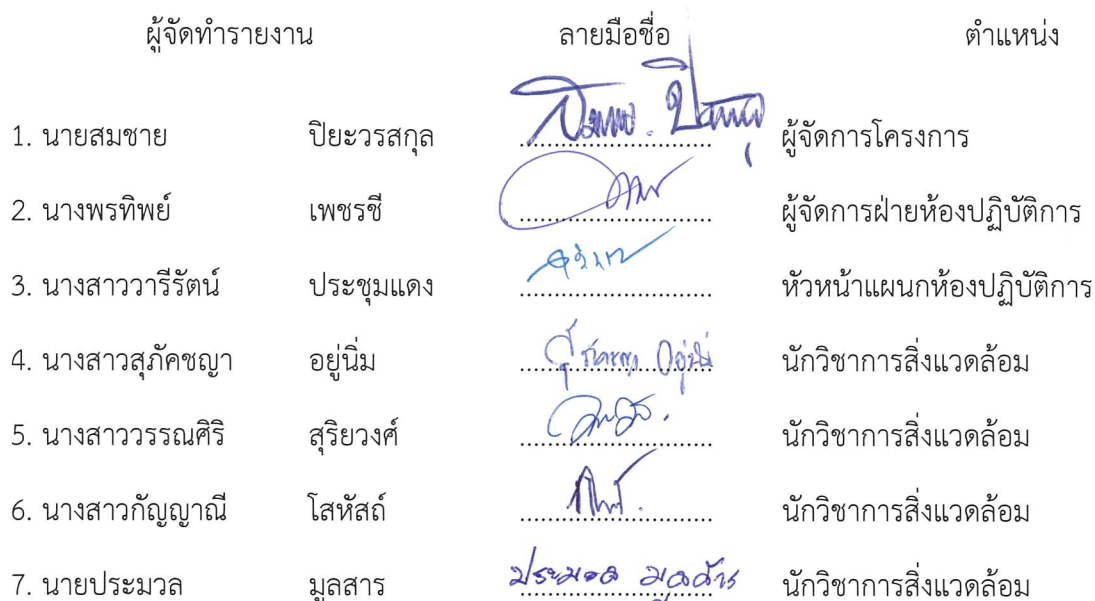 ผู้จัดทำรายงาน ลายมือชื่อ ตำแหน่ง
1. นายสมชาย ปิยะวรสกุล ผู้จัดการโครงการ
2. นางพรทิพย์ เพชรชี ผู้จัดการฝ่ายห้องปฏิบัติการ
3. นางสาววารีรัตน์ ประชุมแดง หัวหน้าแผนกห้องปฏิบัติการ
4. นางสาวสุภัคชญา อยู่นิ่ม นักวิชาการสิ่งแวดล้อม
5. นางสาววรรณศิริ สุริยวงศ์ นักวิชาการสิ่งแวดล้อม
6. นางสาวกัญญาณี โสหัสถ์ นักวิชาการสิ่งแวดล้อม
7. นายประมวล มูลสาร ประมวล มูลสาร นักวิชาการสิ่งแวดล้อม